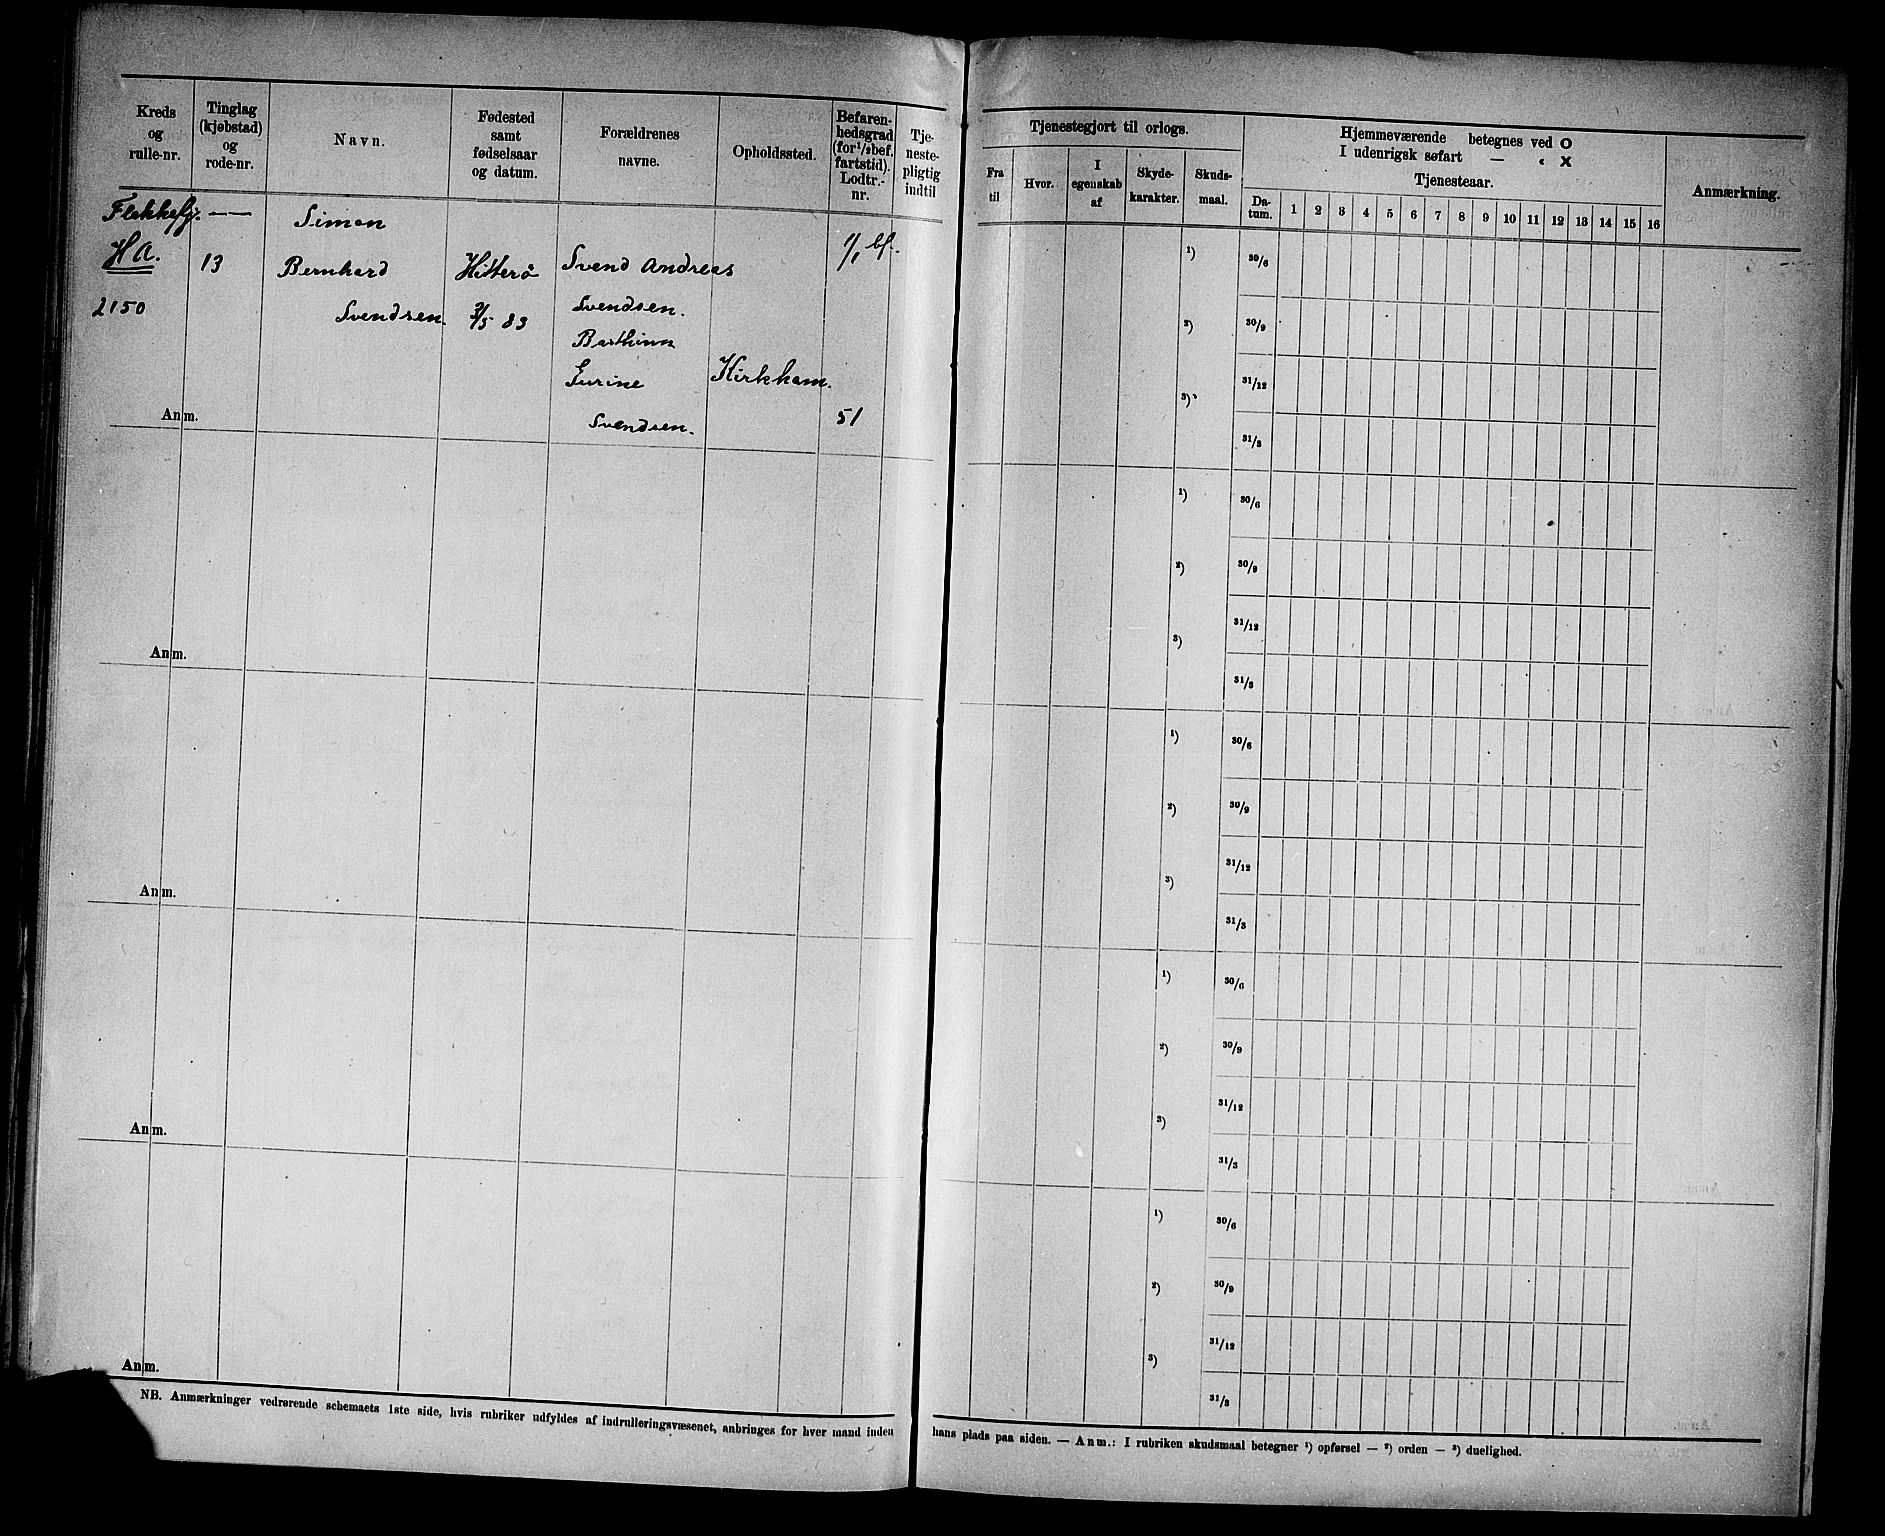 Kreds
og
rulle-nr.
Tinglag
(kjøbstad)
og
rode-nr.
Navn.
Fødested
samt
fødselsaar
og datum.
Forældrenes
navne.
Opholdssted.
Befaren-
hedsgrad
(for ½ bef.
fartstid).
Lodtr.-
nr.
Tje-
neste-
pligtig
indtil
Tjenestegjort til orlogs.
Fra
til
Hvor.
I
egenskab
af
Skyde-
karakter.
Skuds-
maal.
Hjemmeværende betegnes ved O
I udenrigsk søfart — « X
Tjenesteaar.
Da-
tum.
1 2 3 4 5 6 7 8 9 10 11 12 13 14 15 16
Anmærkning.
Flekkefj. —
H A.
2150
13
Simon
Bernhard
Svendsen.
Hitterø
83
Svend Andreas
Svendsen.
Gurine
Svendsen.
Kirkham.
1/1 bf.
51
Anm.
1)
2)
3)
30/6
30/9
31/12
31/3
Anm.
1)
2)
3)
30/6
30/9
31/12
31/3
Anm.
1)
2)
3)
30/6
30/9
31/12
31/3
Anm.
1)
2)
3)
30/6
30/9
31/12
31/3
Anm.
1)
2)
3)
30/6
30/9
31/12
31/3
NB. Anmærkninger vedrørende schemaets 1ste side, hvis rubriker udfyldes af indrulleringsvæsenet, anbringes for hver mand inden
hans plads paa siden. — Anm.: I rubriken skudsmaal betegner ¹) opførsel — ²) orden — ³) duelighed.